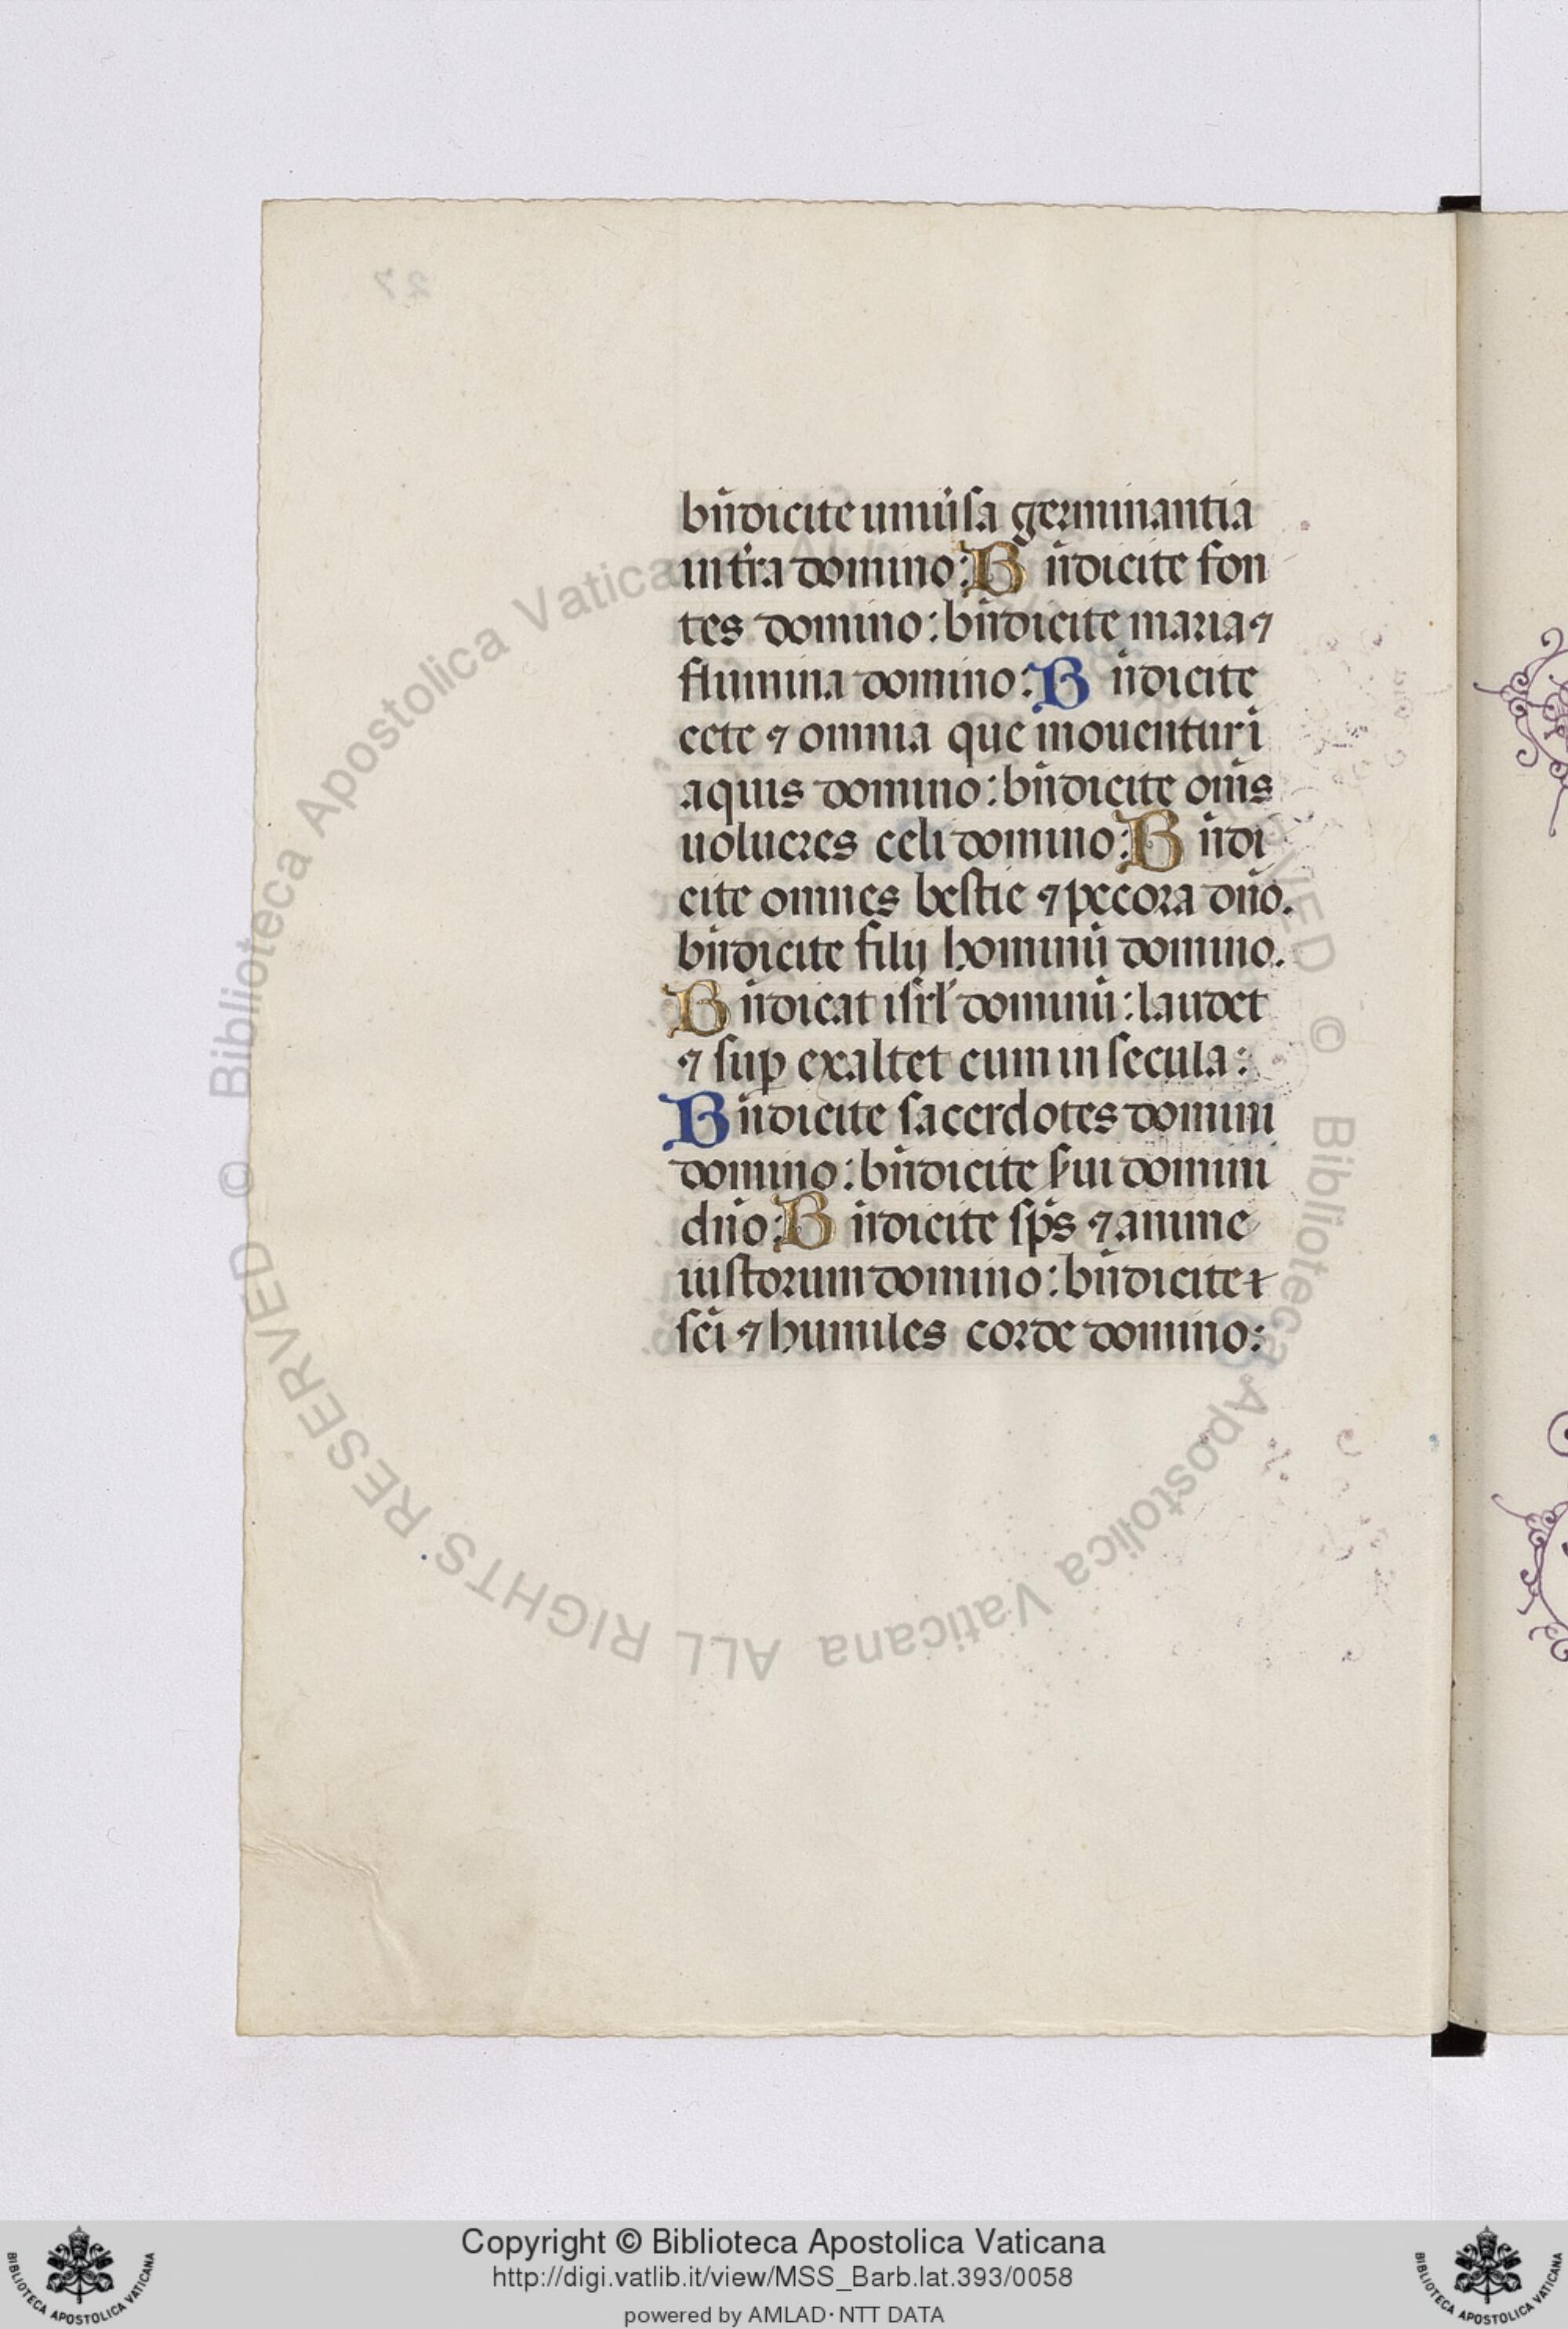 bn̄dicite uniu̾sa germinantia
in tr̄a domino: Bn̄dicite fon
tes domino: bn̄dicite maria ⁊
flumina domino: Bn̄dicite
cete ⁊ omnia que mouentur ī
aquis domino: bn̄dicite om̄s
uolucres celi domino: Bn̄di
cite omnes bestie ⁊ pecora dn̄o.
bn̄dicite filij hominū domino.
Bn̄dicat isrl̄ dominū: laudet
⁊ suꝑ exaltet eum in secula:
Bn̄dicite sacerdotes domini
domino: bn̄dicite s̾ui domini
dn̄o: Bn̄dicite sp̄s ⁊ anime
iustorum domino: bn̄dicite
sc̄i ⁊ humiles corde domino:
© Biblioteca Apostolica Vaticana ALL RIGHTS RESERVED © Biblioteca Apostolica Vaticana ALL RIGHTS RESERVED
Copyright © Biblioteca Apostolica Vaticana
http://digi.vatlib.it/view/MSS_Barb.lat.393/0058
powered by AMLAD·NTT DATA
BIBLIOTECA APOSTOLICA VATICANA
BIBLIOTECA APOSTOLICA VATICANA